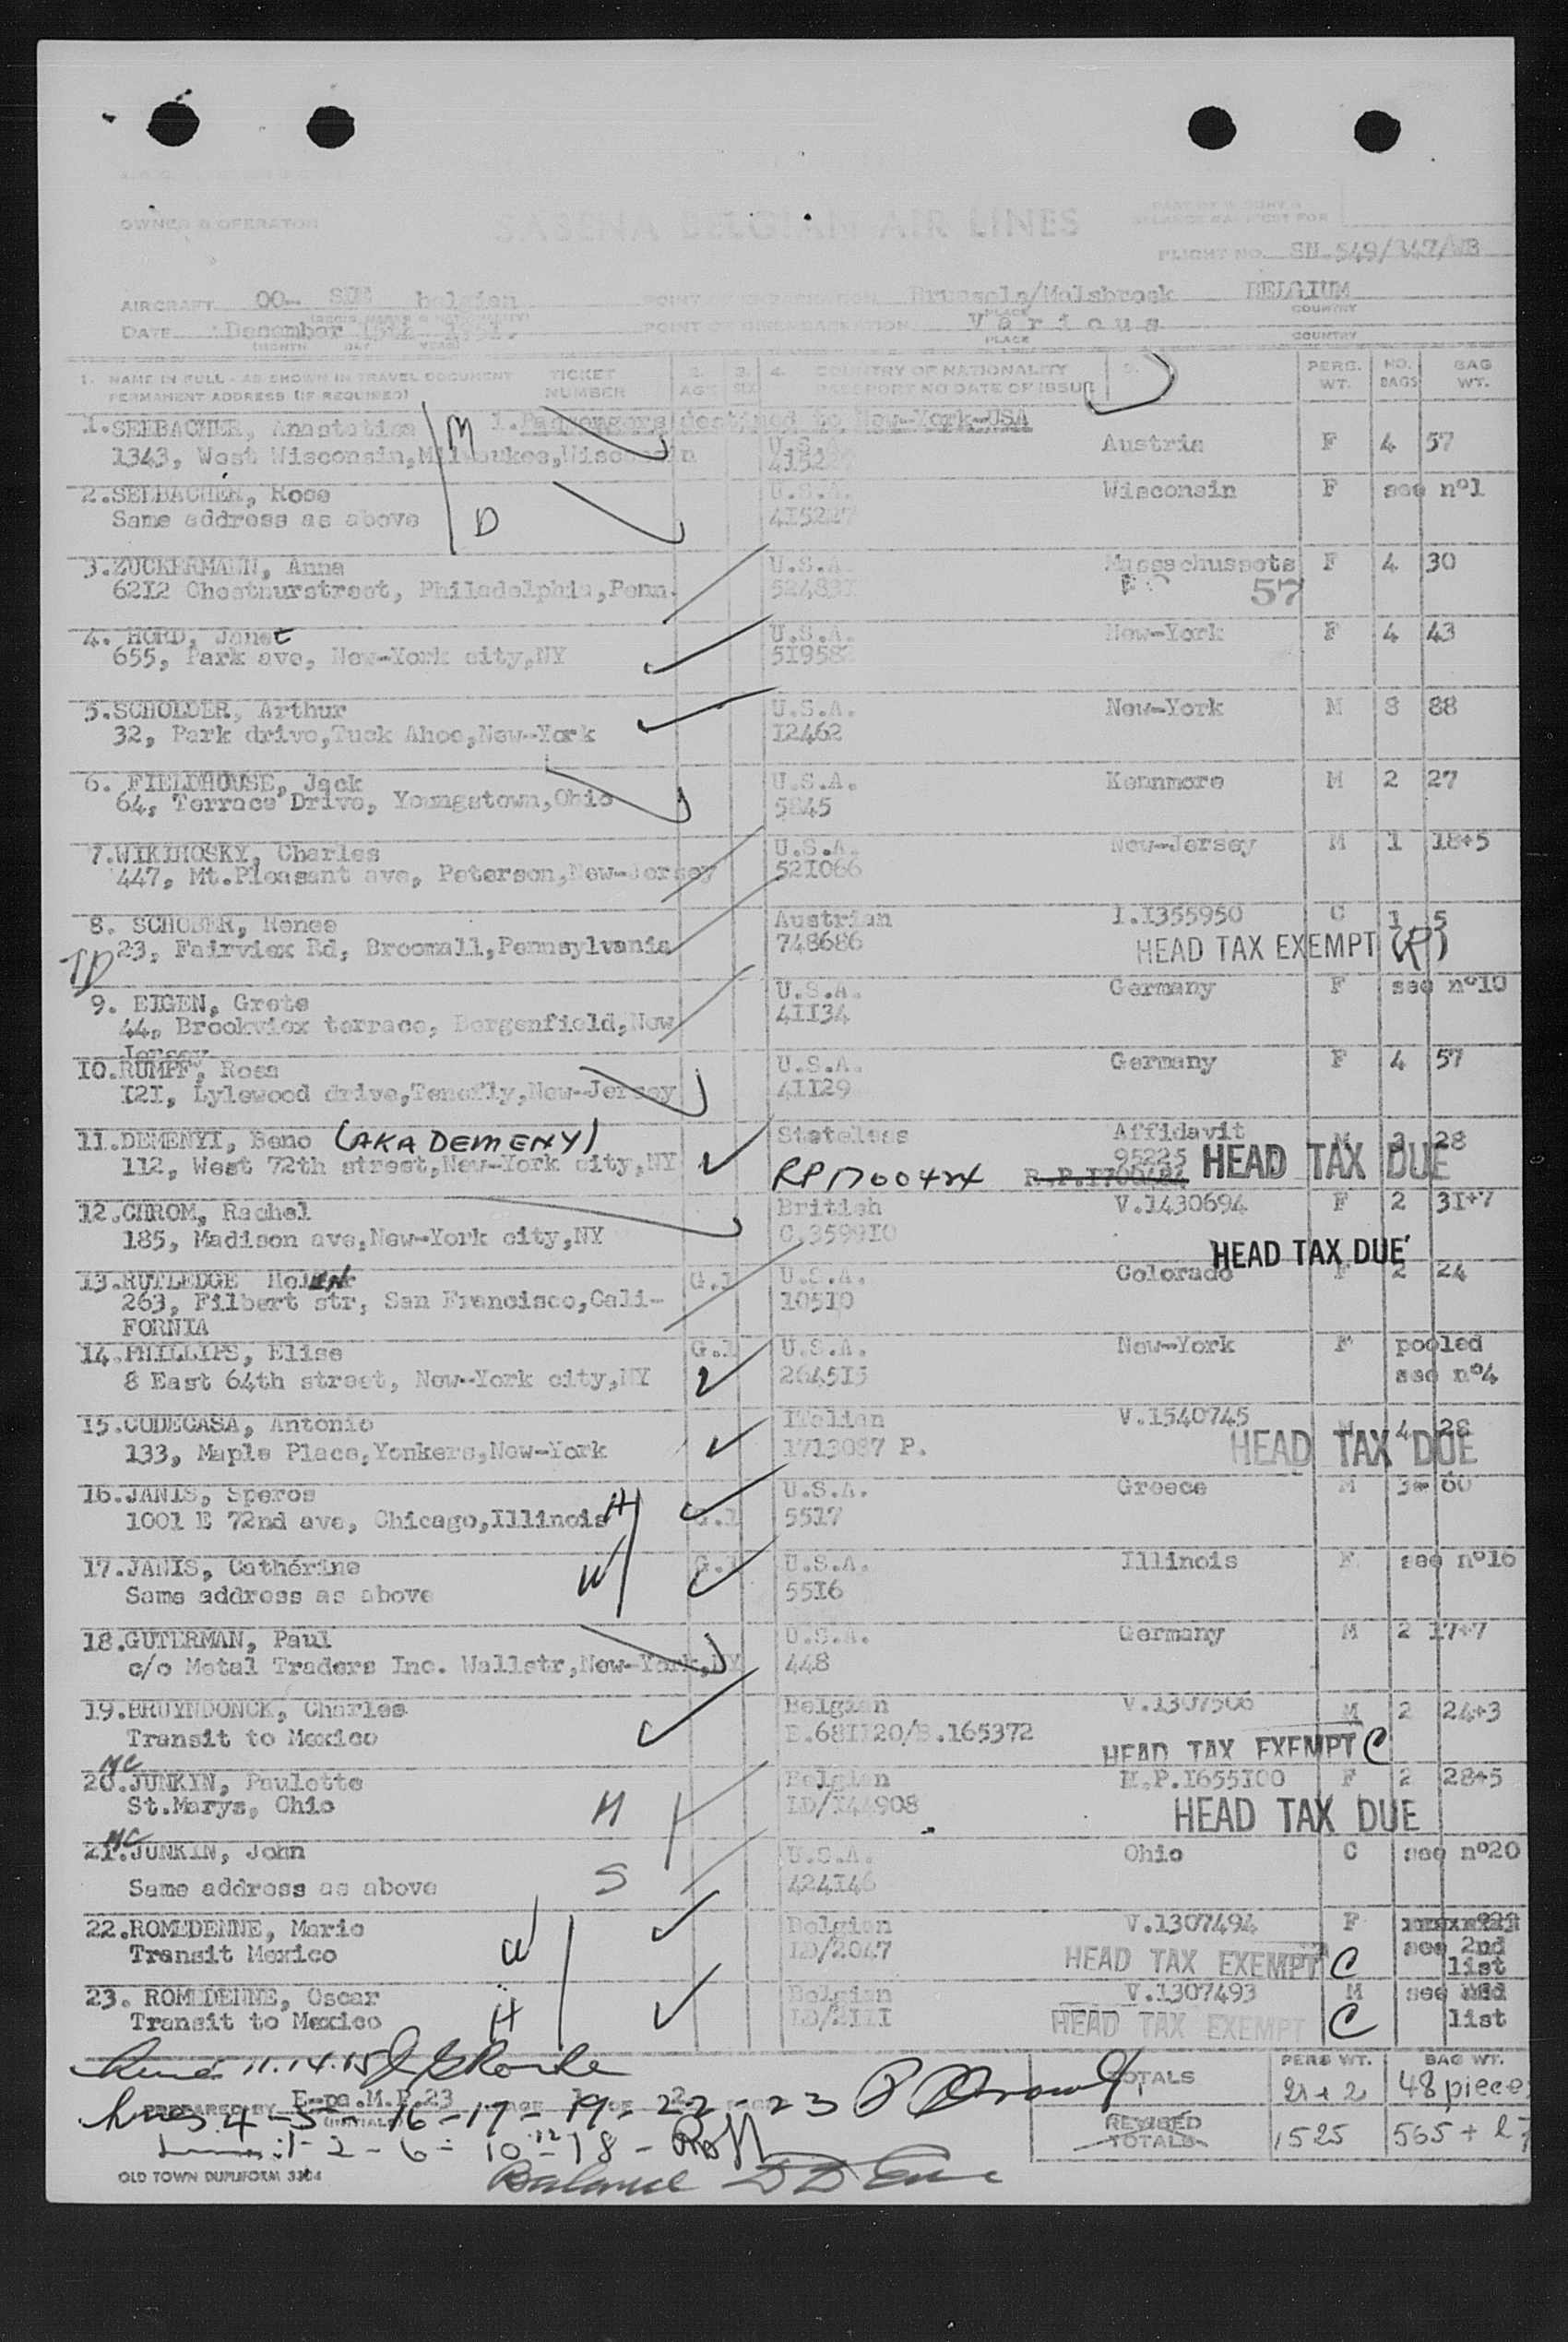 OWNER & OPERATOR
SABENA BELGIAN AIR LINES
FLIGHT NO. SN 549/347/
AIRCRAFT OO- belgian Brussels/Melsbroek BELGIUM
PLACE COUNTRY
DATE December 1951. POINT OF DISEMBARKATION Various
PLACE COUNTRY
1. NAME IN FULL - AS SHOWN IN TRAVEL DOCUMENT TICKET 2. 3. 4. COUNTRY OF NATIONALITY 5. PERS. NO. BAG
PERMANENT ADDRESS (IF REQUIRED) NUMBER AGE SEX PASSPORT NO DATE OF ISSUE WT. BAGS WT.
1. Passengers destined to New-York-USA
1. SEEBACHER, M U.S.A. Austria F 4 57
1343, West Wisconsin, Milwaukee, Wisconsin
2. SEEBACHER, Rose U.S.A. Wisconsin F see nº1
Same address as above D 415227
3. ZUCKERMANN, Anna U.S.A. Massachussets F 4 30
6212 Chestnurstreet, Philadelphia, Penn. 57
4. HORD, Janet U.S.A. New-York F 4 43
655, Park ave, New-York city,NY 51958
5. SCHOLDER, Arthur U.S.A. New-York M 88
32, Park drive,Tuck Ahoe,New-York I2462
6. FIELDHOUSE, Jack U.S.A. Kennmore M 2 27
64, Terrace Drive, Youngstown,Ohio 5845
7. Charles U.S.A. New-Jersey M 1 18+5
447, Mt.Pleasant ave, Peterson,New-Jersey 52I066
8. SCHOBER, Renee Austrian I.I355950 C 1 5
23, Fairviex Rd, Broomall,Pennsylvania 748686 HEAD TAX EXEMPT (P)
TD
9. EIGEN, Grete U.S.A. Germany F see nº10
44, Brookviex terrace, Bergenfield,New 4II34
Jersey
IO.RUMPF, Rosa U.S.A. Germany F 4 57
I2I, Lylewood drive,Tenefly,New-Jersey 4II29
11.DEMENYI, Beno (AKA DEMENY) Stateless Affidavit M 28
112, West 72th street,New-York city,NY 95225 HEAD TAX DUE
RP I700424 R.P.I700484
12.CHROM, Rachel British V.1430694 F 2 31+7
185, Madison ave,New-York city,NY C.3599I0
HEAD TAX DUE
13.RUTLEDGE G.1 U.S.A. Colorado F 2 24
263, Filbert str, San Francisco,Cali- 10510
FORNIA
14.PHILLIPS, Elise G.1 U.S.A. New-York F pooled
8 East 64th street, New-York city,NY see nº4
15.CODECASA, Antonio Italian V.1540745 M 4 28
133, Maple Place,Yonkers,New-York 1713087 P. HEAD TAX DUE
16.JANIS, Speros H U.S.A. Greece M 60
1001 E 72nd ave, Chicago,Illinois G.1 55I7
17.JANIS, Cathérine W G.1 U.S.A. Illinois F see nº16
Same address as above 55I6
18.GUTERMAN, Paul U.S.A. Germany M 2 17+7
c/o Metal Traders Inc. Wallstr,New-York,NY 448
19.BRUYNDONCK, Charles Belgian V.1307506 M 2 24+3
Transit to Mexico E.68II20/B.165372
HEAD TAX EXEMPT C
MC
20.JUNKIN, Paulette Belgian M.P.I655I00 F 2 28+5
St.Marys, Ohio M LD/I44908 HEAD TAX DUE
MC
21.JUNKIN, John U.S.A. Ohio C see nº20
Same address as above S 424I46
22.ROMEDENNE, Marie Belgian V.1307494 F
Transit Mexico W LD/2047 HEAD TAX EXEMPT C see 2nd
list
23. ROMEDENNE, Oscar Belgian V.1307493 M see
Transit to Mexico H LD/2III HEAD TAX EXEMPT C list
11.14.15
PREPARED BY TOTALS PERS WT. BAG WT.
(INITIALS) 21+2 48 pieces
4-5-16-17-19-22-23
REVISED TOTALS 1525 565+
1-2-6-10-12-18
OLD TOWN DUPLIFORM Balance